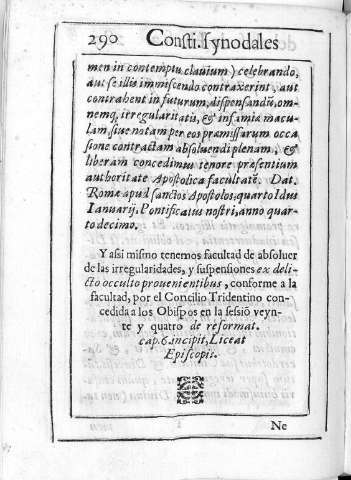 290 Consti. synodales
men in contemptu clauium) celebrando,
aut se illis immiscendo contraxerint, aut
contrahent in futurum, dispensandū, om-
nemq, irregularitatis, & infamiæ macu-
lam, siue notam per eos præmissarum occa
sione contractam absoluendi plenam, &
liberam concedimus tenore præsentium
authoritate Apostolica facultatē. Dat.
Romæ apud sanctos Apostolos, quarto Idus
Ianuarij, Pontificatus nostri, anno quar-
to decimo.
Y assi mismo tenemos facultad de absoluer
de las irregularidades, y suspensiones ex deli-
cto occulto prouenientibus, conforme a la
facultad, por el Concilio Tridentino con-
cedida a los Obispos en la sessiō veyn-
te y quatro de reformat.
cap. 6. incipit, Liceat
Episcopis.
Ne